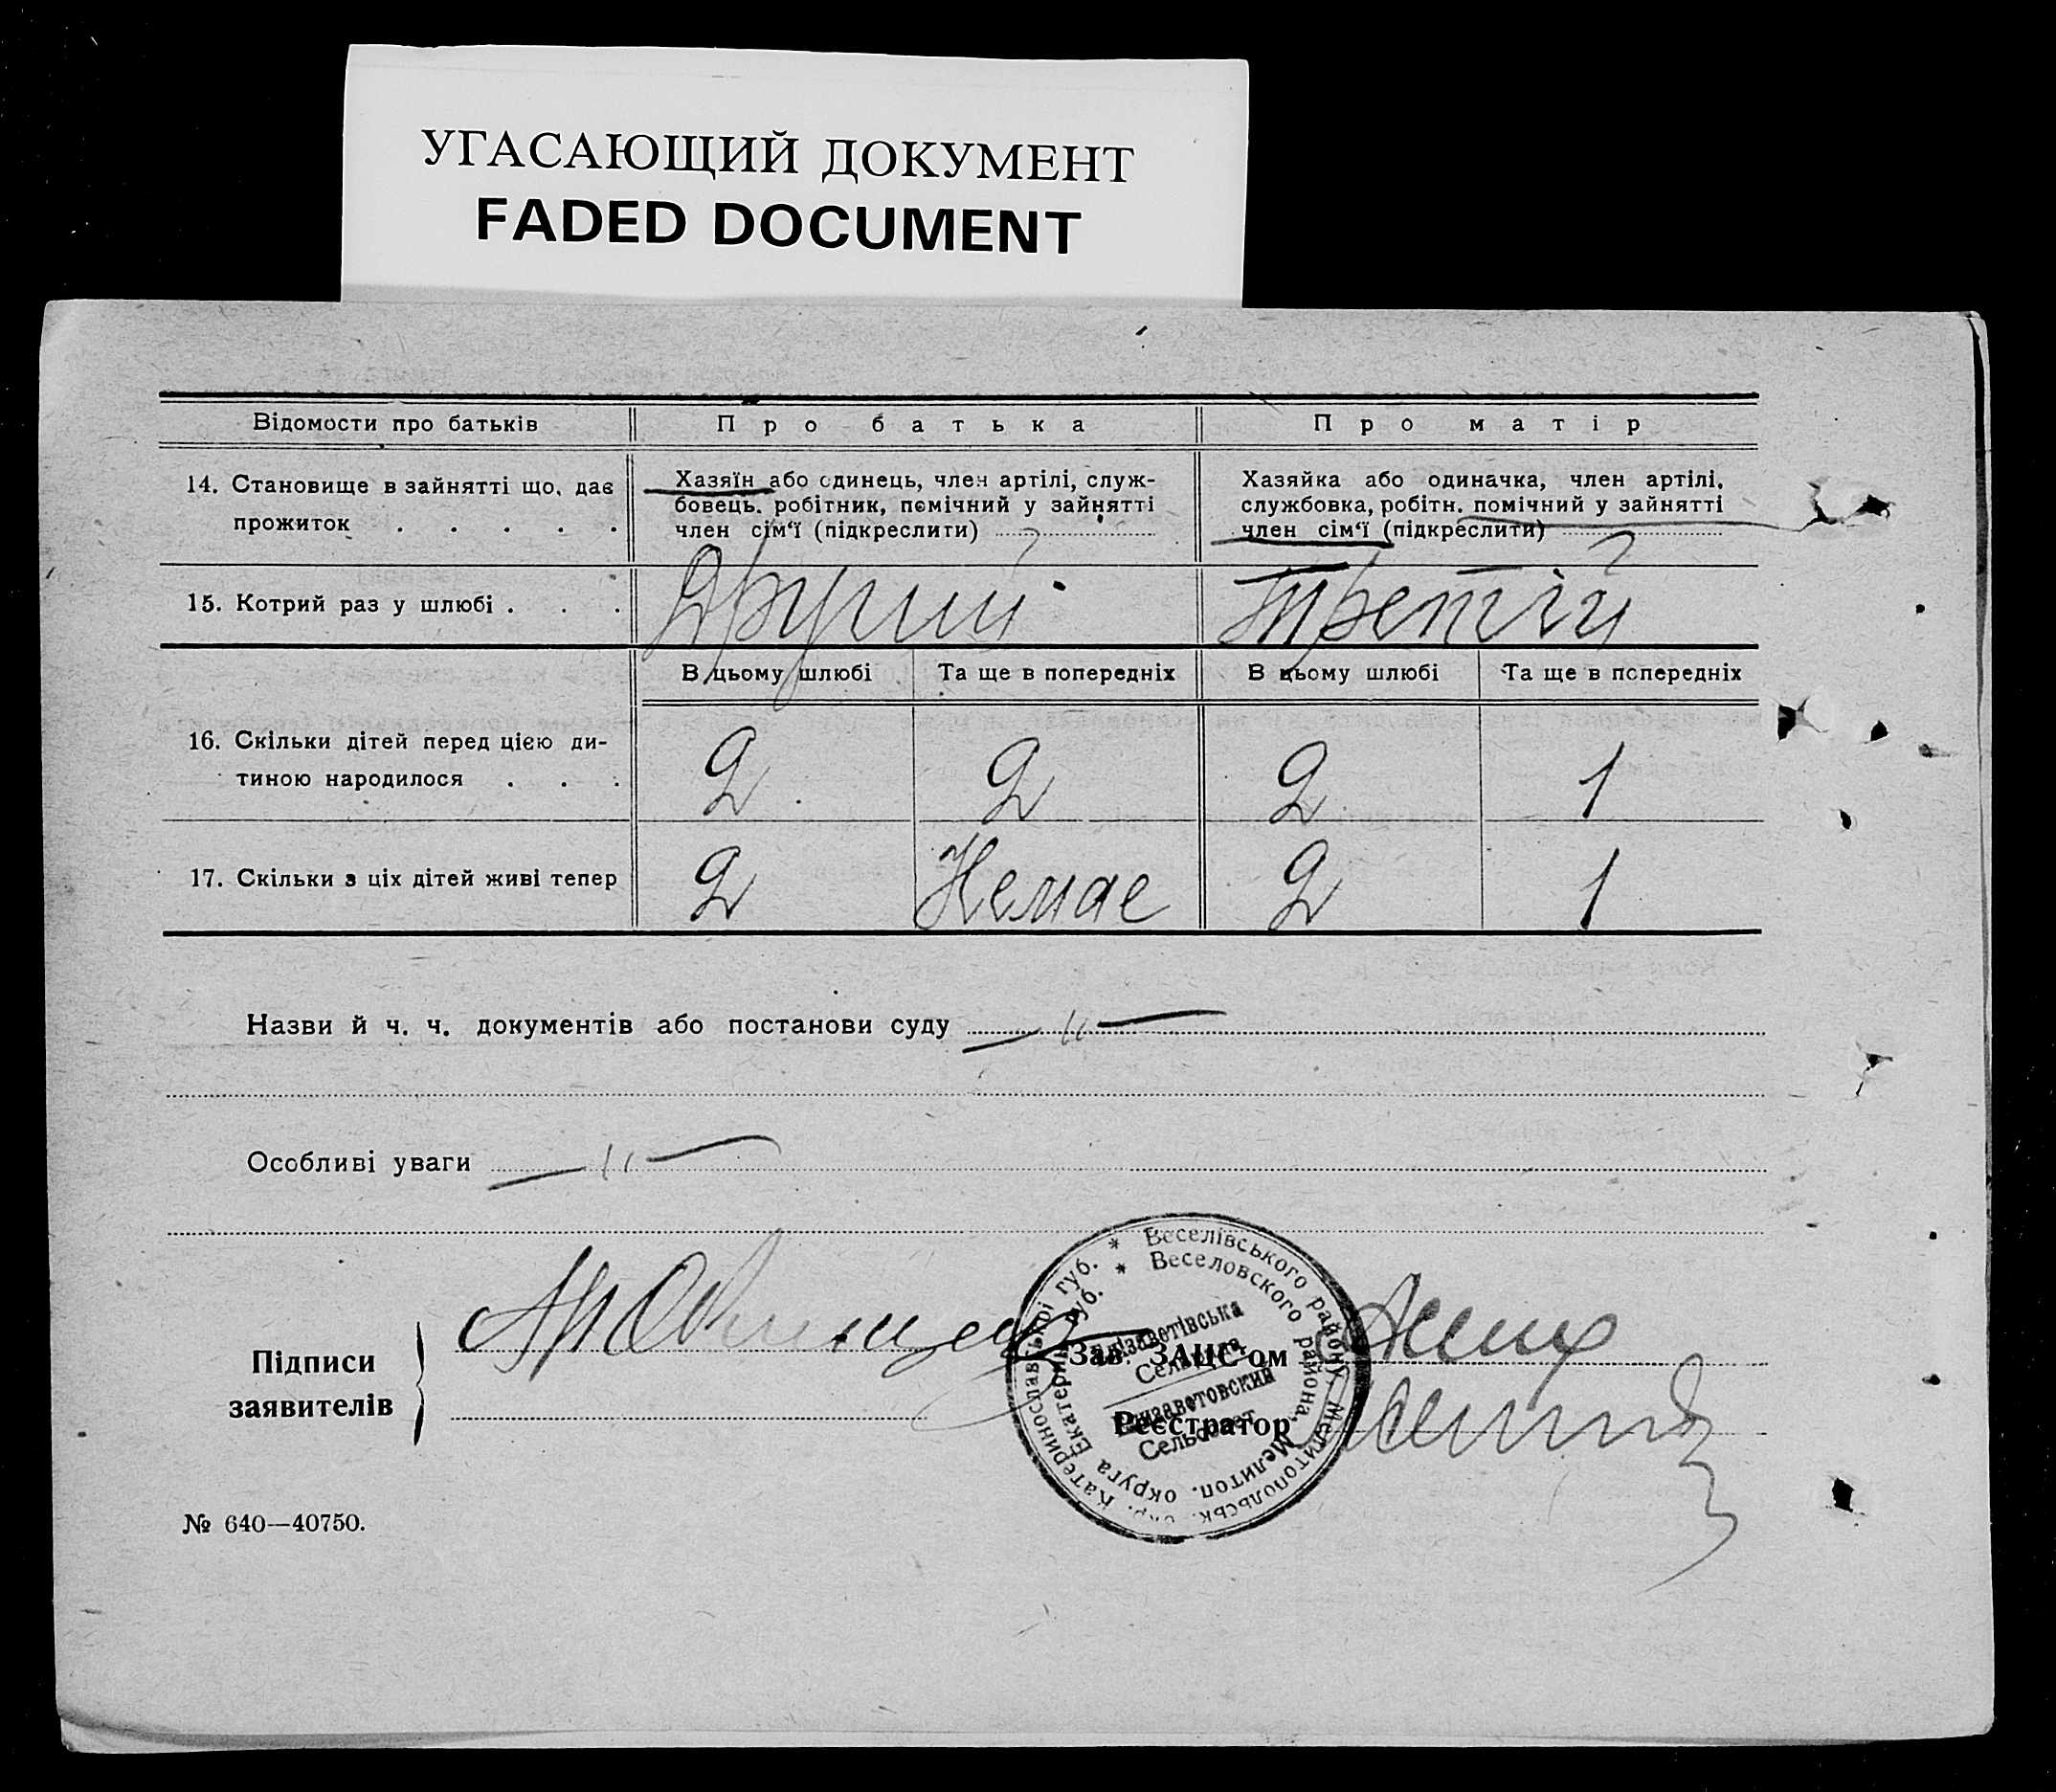 УГАСАЮЩИЙ ДОКУМЕНТ
FADED DOCUMENT
Відомости про батьків
Про батька
Про матір
14. Становище в зайнятті що, дає
прожиток . . . . .
Хазяїн або одинець, член артілі, служ-
бовець, робітник, помічний у зайнятті
член сім‘ї (підкреслити)
Хазяйка або одиначка, член артілі,
службовка, робітн. помічний у зайнятті
член сім‘ї (підкреслити)
15. Котрий раз у шлюбі . . .
Другий
Третій
В цьому шлюбі
Та ще в попередніх
В цьому шлюбі
Та ще в попередніх
16. Скільки дітей перед цією ди-
тиною народилося . . .
2
2
2
1
17. Скільки з ціх дітей живі тепер
2
Немае
2
1
Назви й ч. ч. документів або постанови суду — „ —
Особливі уваги — „ —
Підписи
заявителів
Зав. ЗАГС-ом
Реєстратор
* Веселівського району Мелітопольськ. окр. Катеринославської губ.
* Веселовского района. Мелитоп. округа Екатерин. губ.
Єлізаветівська
Сельрада
Елизаветовский
Сельсовет
№ 640—40750.